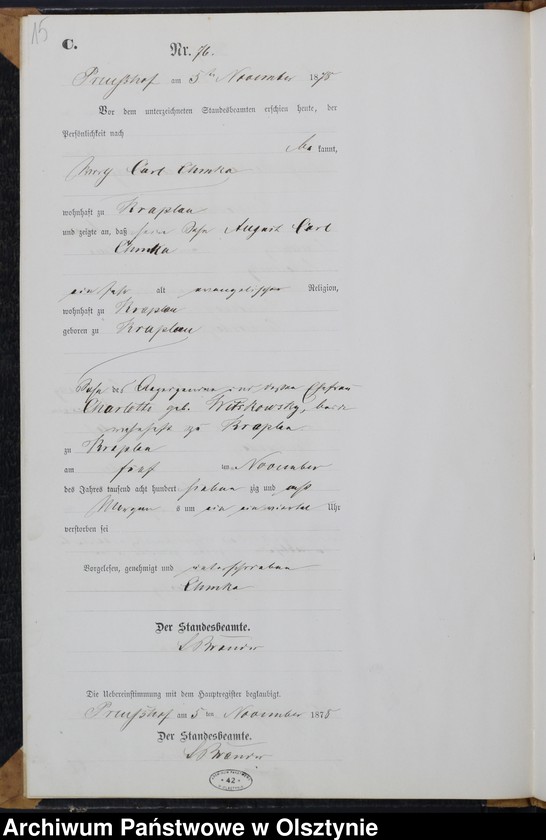 15
C.
Nr. 76.
Preußhof am 5ten November 1875
Vor dem unterzeichneten Standesbeamten erschien heute, der
Persönlichkeit nach
kannt,
Carl Chmka
wohnhaft zu Kraplau
und zeigte an, daß sein Sohn August Carl
Chmka
ein Jahr alt evangelischer Religion,
wohnhaft zu Kraplau
geboren zu Kraplau
Sohn des und dessen Ehefrau
Charlotte geb. beide
wohnhaft zu Kraplau
zu Kraplau
am fünf ten November
des Jahres tausend acht hundert sieben zig und
Morgens um ein ein viertel Uhr
verstorben sei
Vorgelesen, genehmigt und unterschrieben
Chmka
Der Standesbeamte.
Die Uebereinstimmung mit dem Hauptregister beglaubigt.
Preußhof am 5 ten November 1875
Der Standesbeamte.
42
Archiwum Państwowe w Olsztynie